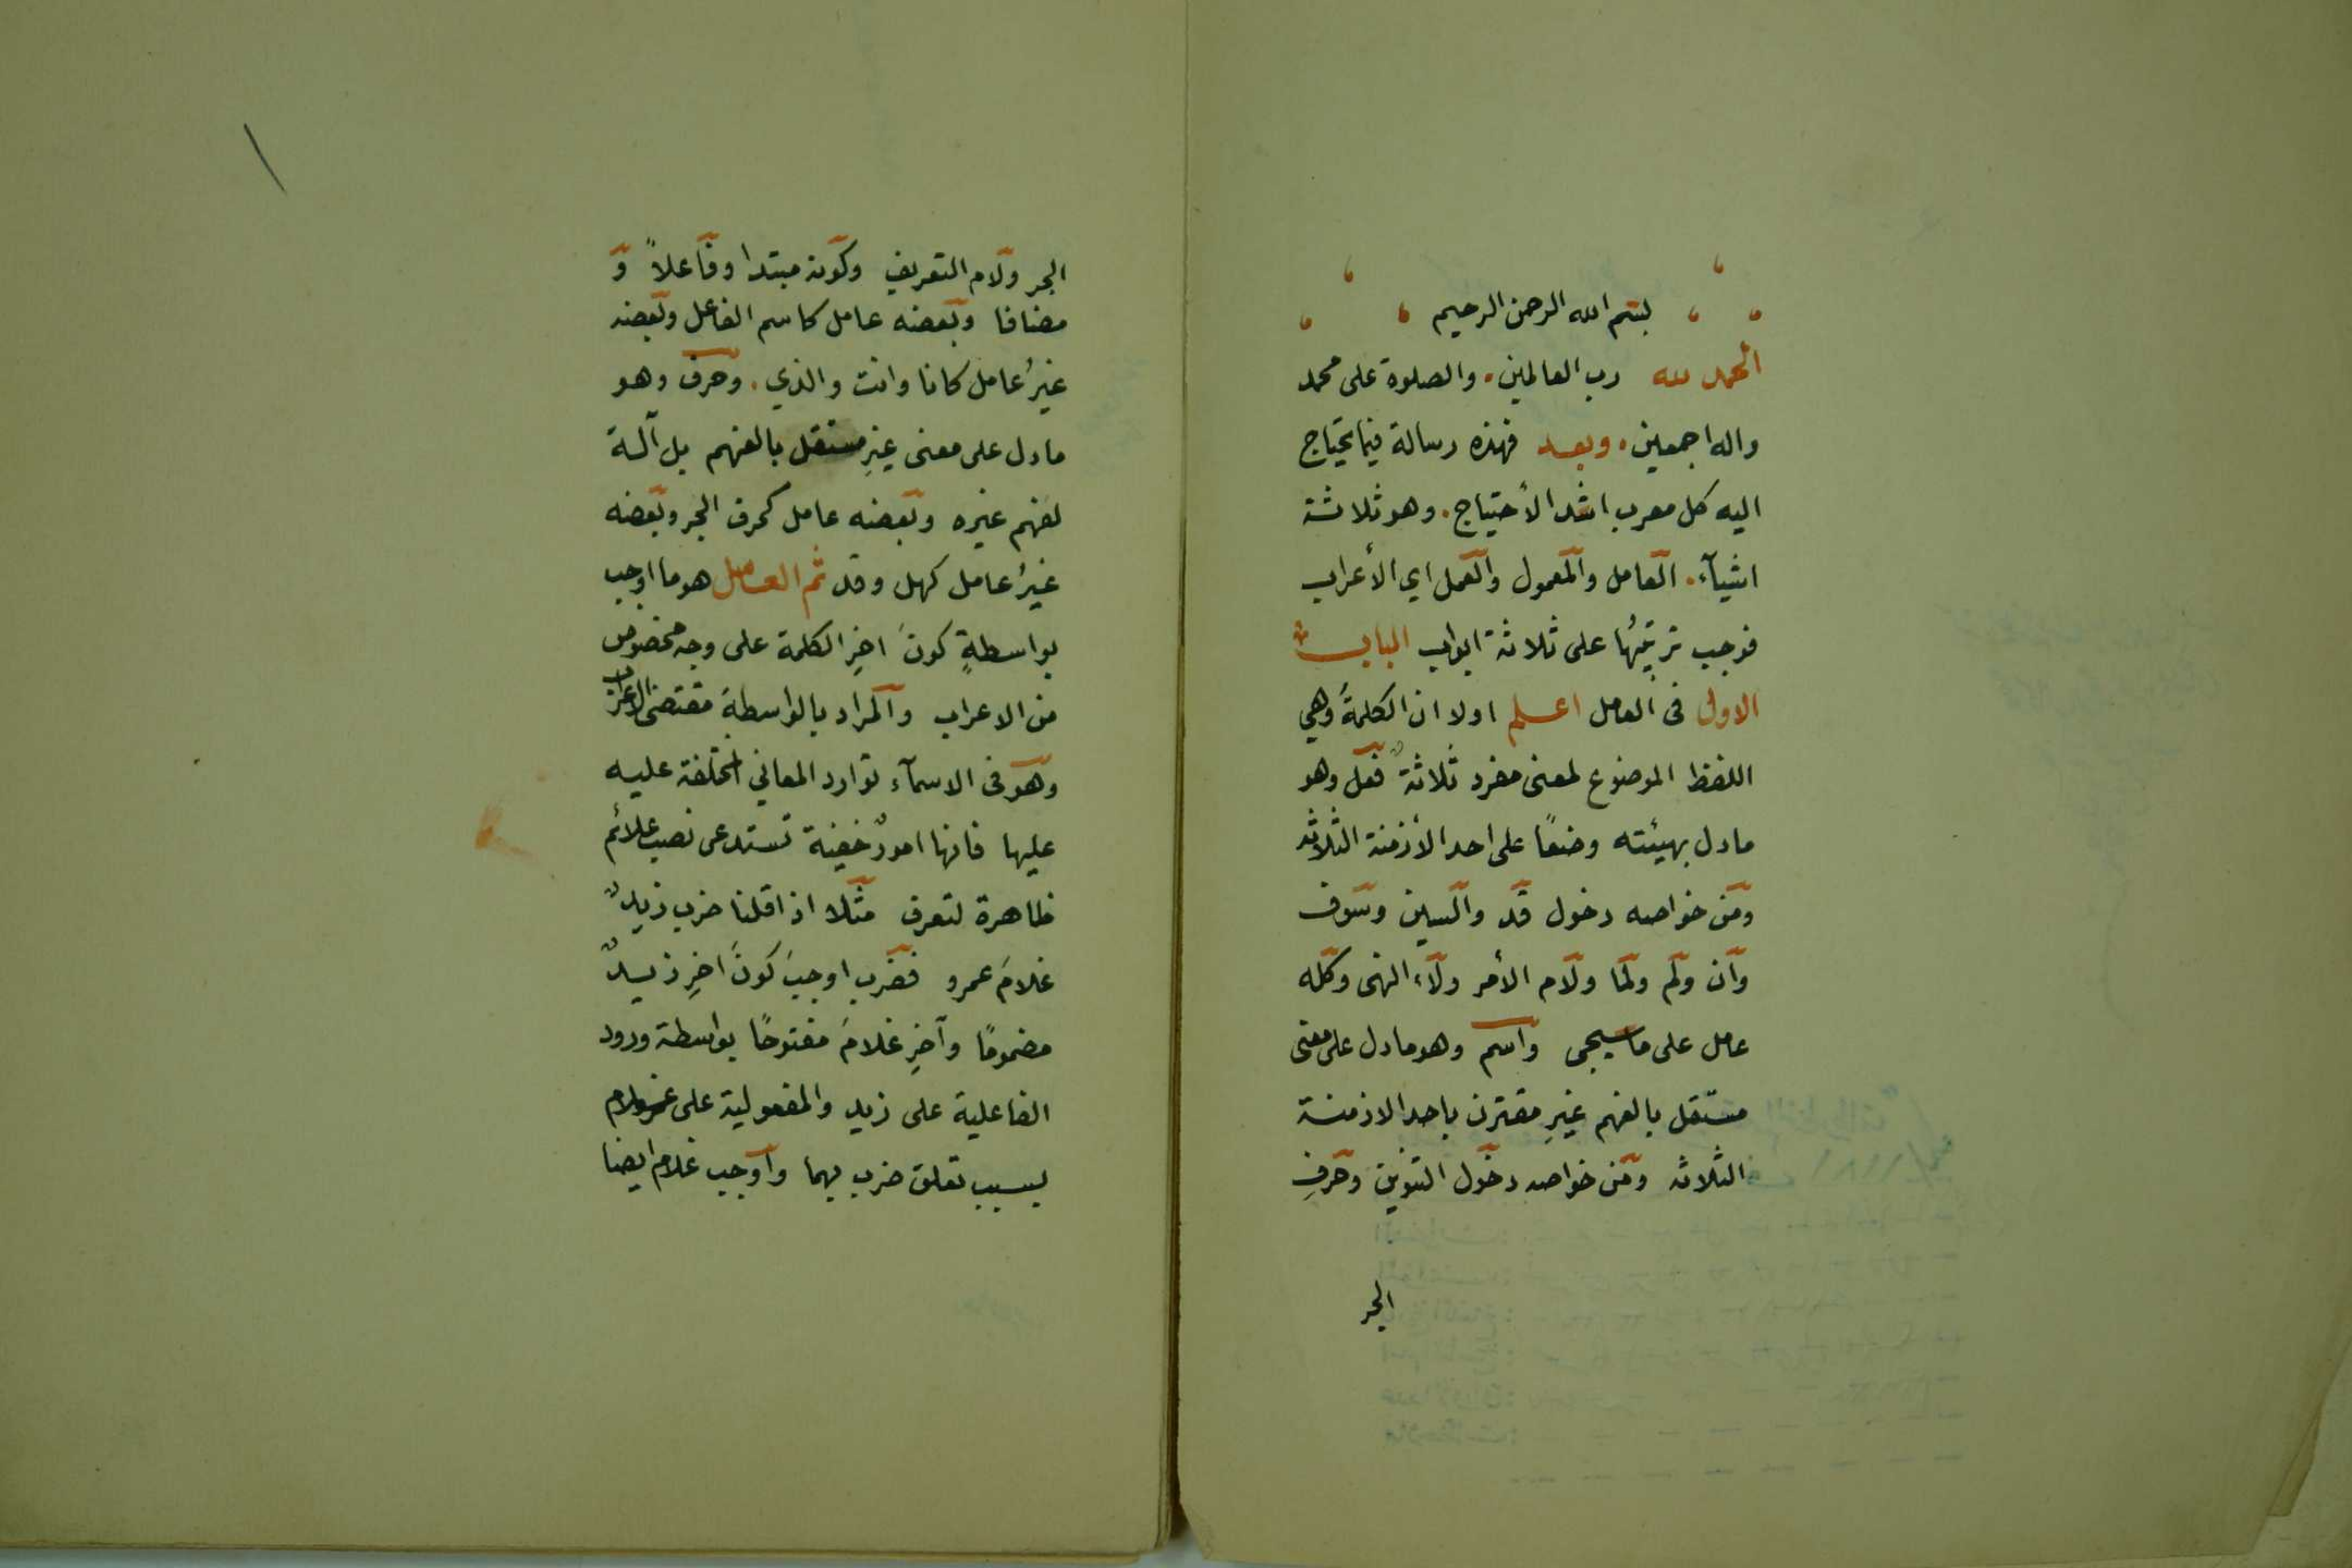 بسم الله الرحمن الرحيم
الحمد لله رب العالمين والصلوة على محمد
واله اجمعين وبعد فهذه رسالة فيما يحتاج
اليه كل معرب اشد الأحتياج وهو ثلاثة
اشيآء العامل والمعمول والعمل اي الأعراب
فوجب ترتيبُها على ثلاثة ابواب الباب
الاول فى العامل اعلم اولا ان الكلمةَ وهي
اللفظ الموضوع لمعنى مفرد ثلاثةٌ فعل وهو
مادل بهيئته وضعًا على احد الأزمنة الثلاثة
ومن خواصه دخول قد والسين وسوف
وان ولم ولما ولام الأمر ولاء النهى وكله
عامل على ماسيجى واسم وهو مادل على معنى
مستقل بالفهم غيرِ مقترن باحد الازمنة
الثلاثه ومن خواصه دخول التنوين وحرفِ
الجر
الجر ولام التعريف وكونه مبتدا وفاعلاً و
مضافا وبعضه عامل كاسم الفاعل وبعضه
غيرُ عامل كانا وانت والذي وحرف وهو
مادل على معنى غيرِ مستقل بالفهم بل آلة
لفهم غيره وبعضه عامل كحرف الجر وبعضه
غيرُ عامل كهل وقد ثم العامل هو ما اوجب
بواسطةٍ كونَ اخِرِ الكلمة على وجه مخصوص
من الاعراب والمراد بالواسطة مقتضى الاعراب
وهو فى الاسمآء توارد المعاني المختلفة عليه
عليها فانها امورٌ خفية تستدعى نصب علائم
ظاهرة لتعرف مثلا اذا قلنا ضرب زيدٌ
غلامَ عمرو فضرب اوجبَ كونَ اخِرِ زيدٌ
مضمومًا وآخِرِ غلامَ مفتوحًا بواسطة ورود
الفاعلية على زيد والمفعولية على غلام
بسبب تعلق ضرب بهما واوجب غلام ايضا